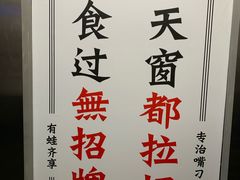 专治嘴刁
天窗都拉
食过無招牌
有蛙齐享